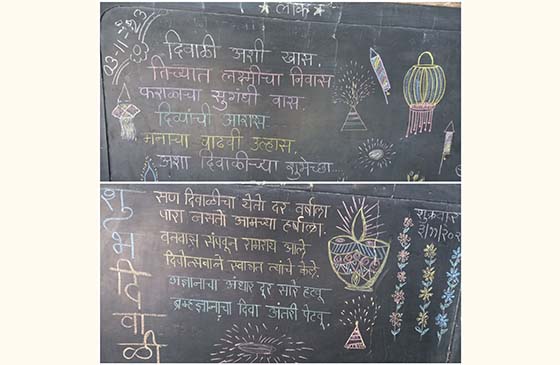 03-11-23
दिवाळी अशी खास.
तिच्यात लक्ष्मीचा निवास
फराळाचा सुगंधी वास.
दिव्यांची आरास
मनाचा वाढवी उल्हास.
अशा दिवाळीच्या शुभेच्छा
शुभ दिवाळी
सण दिवाळीचा येतो दर वर्षाला
पारा नसतो आमच्या हर्षाला.
वनवास संपवून रामराय आले
दिपोत्सवाने स्वागत त्यांचे केले.
अज्ञानाचा अंधार दूर सारे हटवू
ब्रम्हज्ञानाचा दिवा अंतरी पेटवू
शुक्रवार